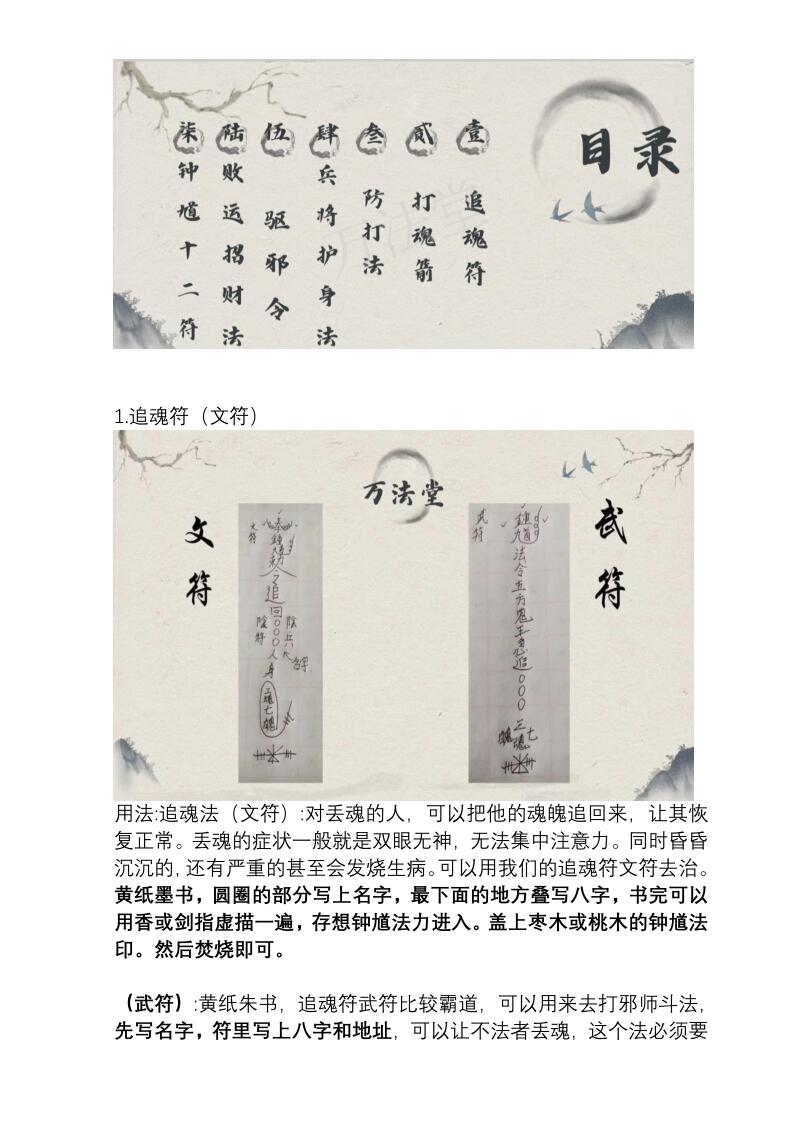 目录
壹 追魂符
贰 打魂箭
叁 防打法
肆 兵将护身法
伍 驱邪令
陆 败运招财法
柒 钟馗十二符
万法堂
1.追魂符（文符）
万法堂
武符
武符
法令五方鬼王急追
000
三魂七魄
文符
文符
奉
令
追
回
000
人
身
三魂七魄
陰兵
名字
用法:追魂法（文符）:对丢魂的人，可以把他的魂魄追回来，让其恢
复正常。丢魂的症状一般就是双眼无神，无法集中注意力。同时昏昏
沉沉的，还有严重的甚至会发烧生病。可以用我们的追魂符文符去治。
黄纸墨书，圆圈的部分写上名字，最下面的地方叠写八字，书完可以
用香或剑指虚描一遍，存想钟馗法力进入。盖上枣木或桃木的钟馗法
印。然后焚烧即可。
（武符）:黄纸朱书，追魂符武符比较霸道，可以用来去打邪师斗法，
先写名字，符里写上八字和地址，可以让不法者丢魂，这个法必须要